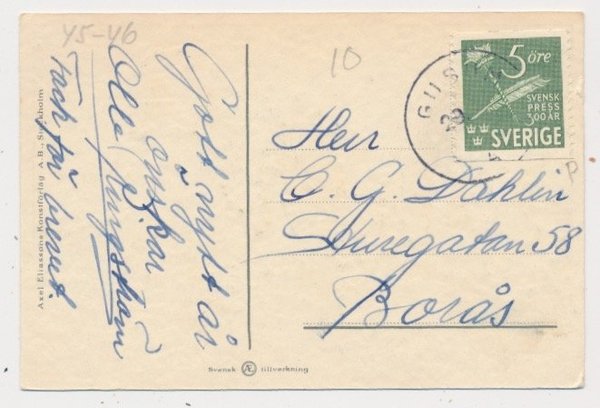 45-46
10
Gott nytt år
önskar
Olle Ljungström
Tack för brevet.
Axel Eliassons Konstförlag A.B., Stockholm
Svensk Æ tillverkning
GUS
5 öre
SVENSK
PRESS
300 ÅR
SVERIGE
Herr
C. G. Dahlin
Sturegatan 58
Borås
P